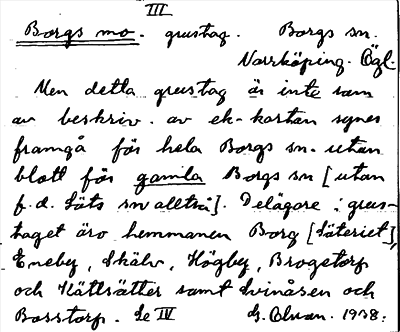 III
Borgs mo. grustag. Borgs sn.
Norrköping. Ögl.
Men detta grustag är inte som
av beskriv. av ek-kartan synes
framgå för hela Borgs sn. utan
blott för gamla Borgs sn [utan
f.d. Läts sn alltså]. Delägare i grus-
taget äro hemmanen Borg [säteriet],
Eneby, Skälv, Högby, Brogetorp
och Kättsätter samt Svinåsen och
Bosstorp. Se IV G. Olman. 1938.